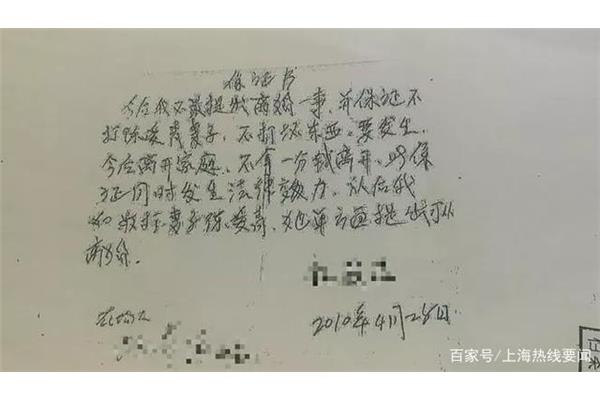 保证书
今后我不敢提出离婚一事,并保证不
打陈爱 妻子,不打坏东西。要发生,
今后离开家庭,不拿一分钱离开,此保
证同时发生法律效力,从后我
如 妻子陈爱 ,她单方面提出可以
离婚。
2010年4月25日
百家号/上海热线要闻